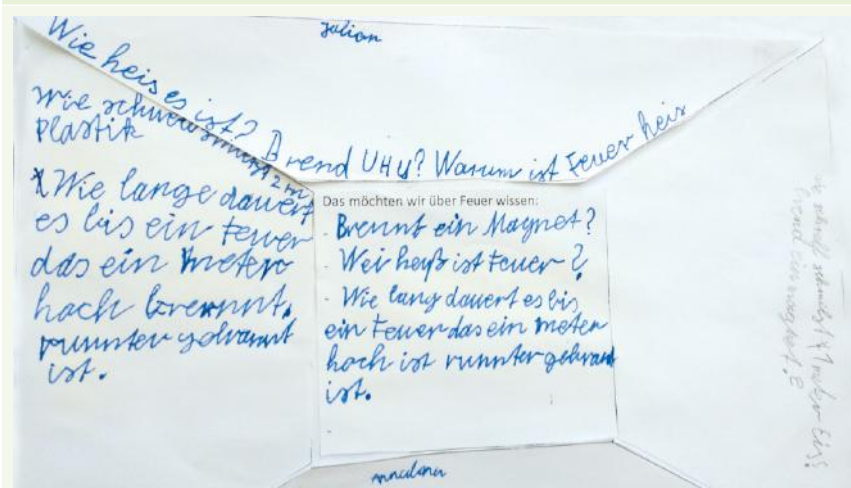 Julian
Wie heis es ist?
Brend UHU? Warum ist Feuer heis
Wie schnell schmilzt 2m
Plastik
Wie lange dauert
es bis ein Feuer
das ein meter
hoch brennt.
runnter gebrannt
ist.
Das möchten wir über Feuer wissen:
- Brennt ein Magnet?
- Wei heiß ist Feuer?
- Wie lang dauert es bis
ein Feuer das ein meter
hoch ist runnter gebrant
ist.
-
schnell schmilzt 1 meter Eis?
brend ein magnet?